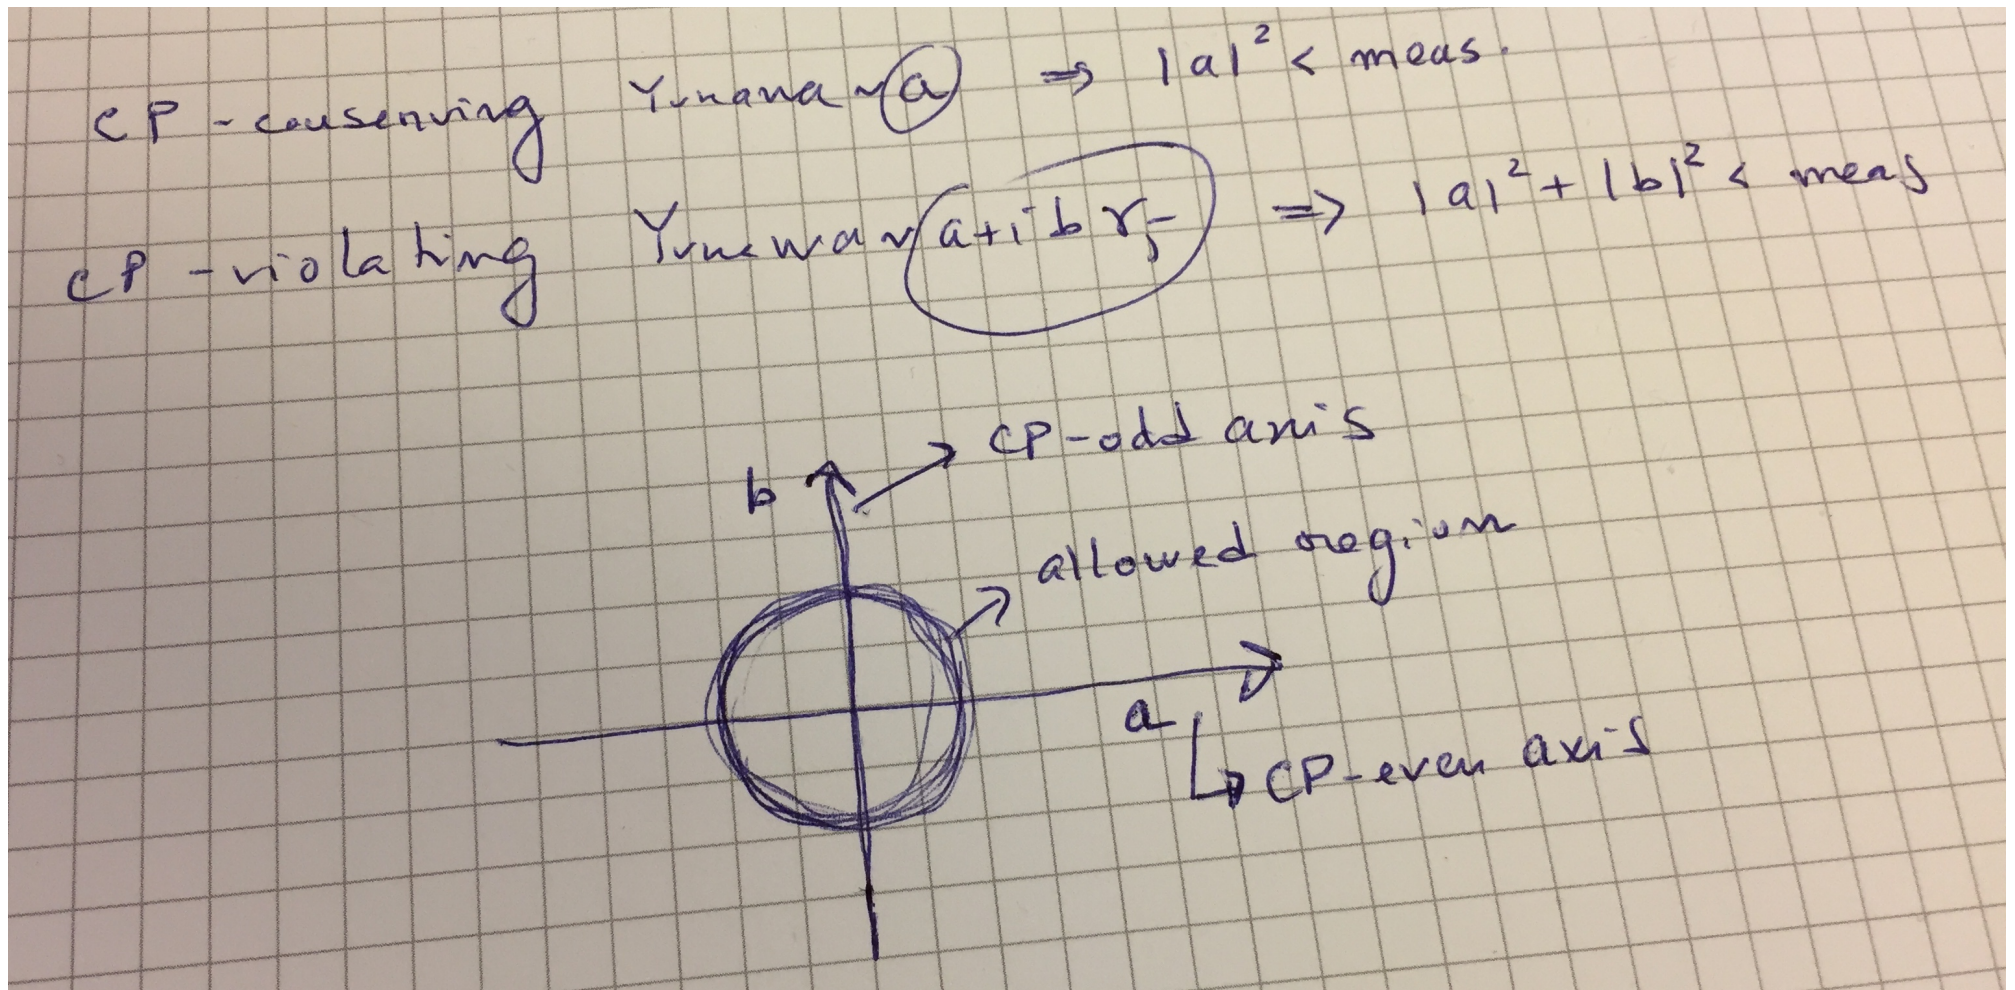 CP-conserving Yukawa ~ a ⇒ |a|² < meas.
CP-violating Yukawa ~ a+ibγ₅ ⇒ |a|² + |b|² < meas
CP-odd axis
b
allowed region
a
CP-even axis